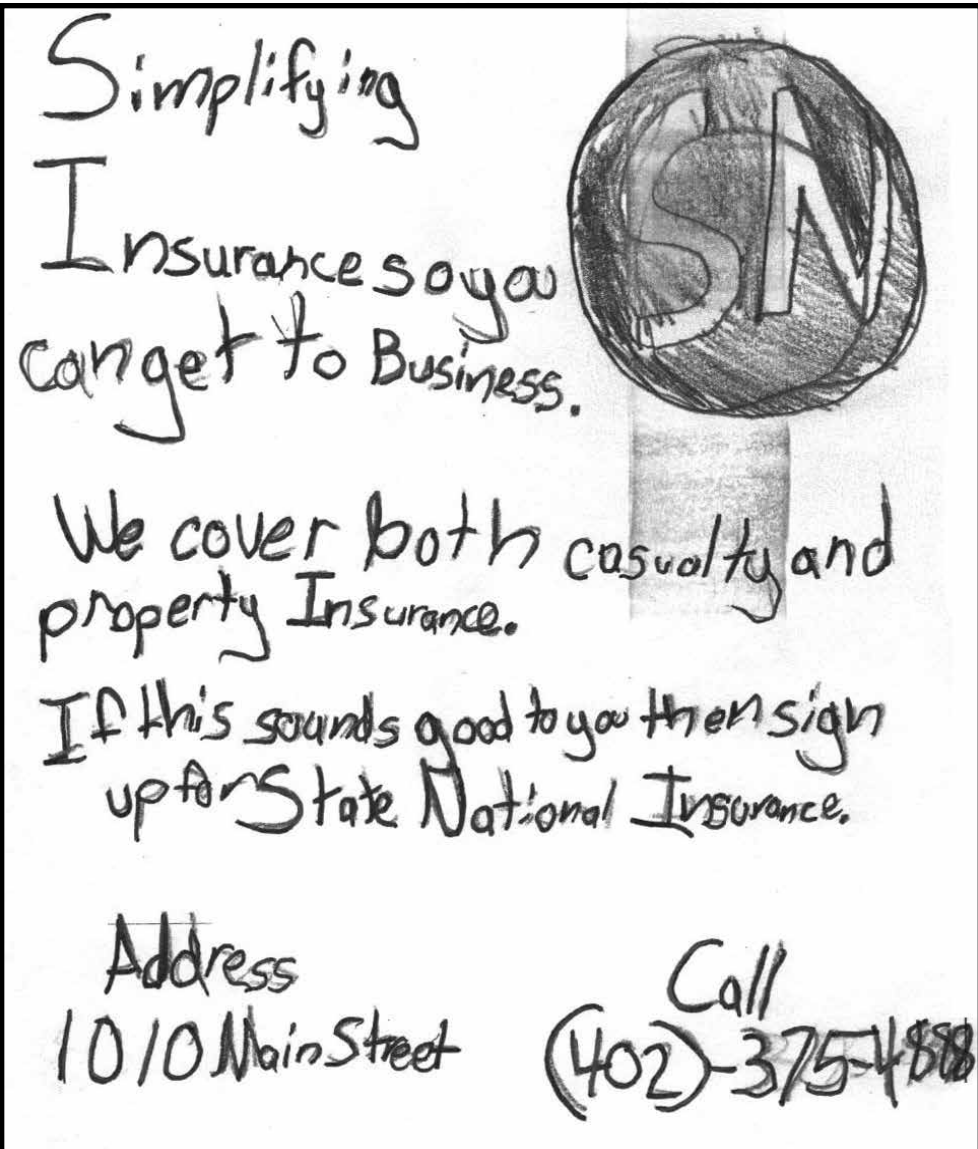 Simplifying
SN
Insurance so you
can get to Business.
We cover both casualty and
property Insurance.
If this sounds good to you then sign
up for State National Insurance.
Address
1010 Main Street
Call
(402)-375-4888